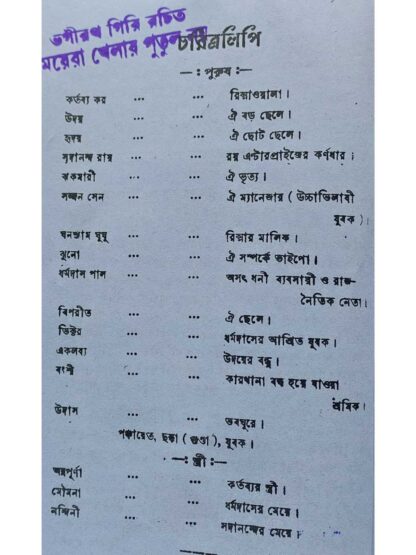 ভগীরথ গিরি রচিত
মেয়েরা খেলার পুতুল নয়
চরিত্রলিপি
—: পুরুষ :—
কর্তব্য কর ... ... রিক্সাওয়ালা।
উদয় ... ... ঐ বড় ছেলে।
হৃদয় ... ... ঐ ছোট ছেলে।
সদানন্দ রায় ... ... রয় এন্টারপ্রাইজের কর্ণধার।
ঝকমারী ... ... ঐ ভৃত্য।
সজ্জন সেন ... ... ঐ ম্যানেজার (উচ্চাভিলাষী
যুবক)।
ঘনশ্যাম ঘুঘু ... ... রিক্সার মালিক।
ঝুনো ... ... ঐ সম্পর্কে ভাইপো।
ধর্মদাস পাল ... ... অসৎ ধনী ব্যবসায়ী ও রাজ-
নৈতিক নেতা।
বিপরীত ... ... ঐ ছেলে।
ভিক্টর ... ... ধর্মদাসের আশ্রিত যুবক।
একলব্য ... ... উদয়ের বন্ধু।
বংশী ... ... কারখানা বন্ধ হয়ে যাওয়া
শ্রমিক।
উদাস ... ... ভবঘুরে।
পঞ্চায়েত, ছক্কা (গুণ্ডা), যুবক।
—: স্ত্রী :—
অন্নপূর্ণা ... ... কর্তব্যর স্ত্রী।
মৌমনা ... ... ধর্মদাসের মেয়ে।
নন্দিনী ... ... সদানন্দের মেয়ে।